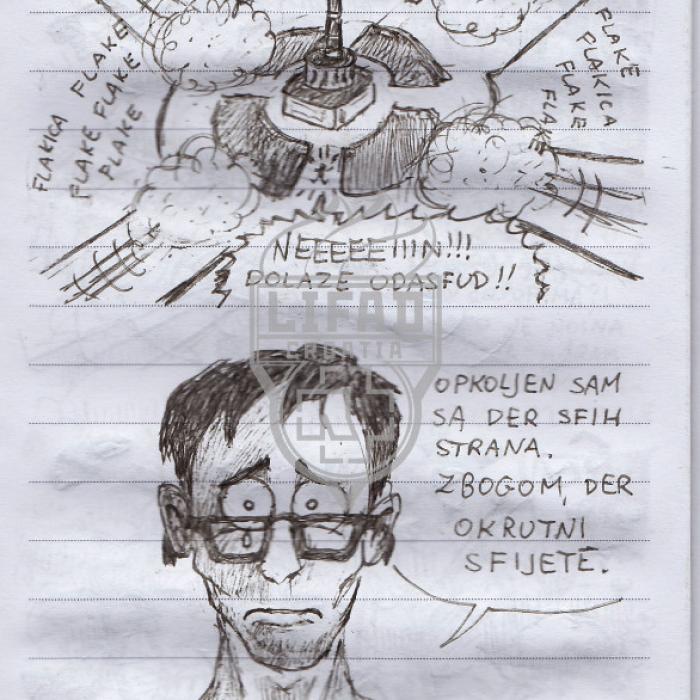 FLAKICA
FLAKE
FLAKE FLAKE
FLAKE
FLAKE
FLAKICA
FLAKE
FLAKE
NEEEEEIIIN!!!
DOLAZE ODASFUD!!
LIFAD
CROATIA
OPKOLJEN SAM
SA DER SFIH
STRANA.
ZBOGOM, DER
OKRUTNI
SFIJETE.